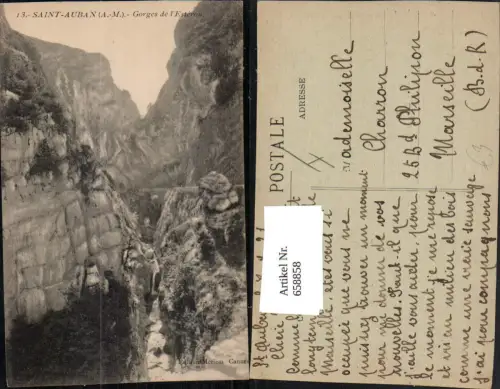 13.-SAINT-AUBAN (A.-M.).- Gorges de l'Estéron
POSTALE
ADRESSE
Mademoiselle
Charron
26 Bd Philipon
Marseille
(B.d.R)
Artikel Nr.
658858
St Auban
Chère
Comme
longtemps
Marseille, êtes vous si
occupée que vous ne
puissiez trouver un moment
pour donner de vos
nouvelles. Faut-il que
j'aille vous aider, pour
le moment je me repose
et vis au milieu des bois
comme une vraie sauvage
j'ai pour compagnons